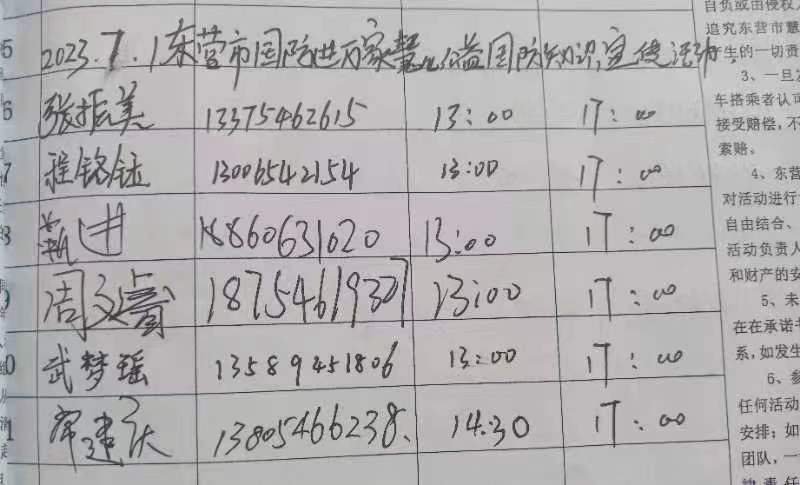 5 2023.7.1东营市国防进万家慧公益国防知识宣传活动.
6 张振美 13375462615 13:00 17:00
7 程铭钰 13006542154 13:00 17:00
进 18860631020 13:00 17:00
周文 18754619307 13:00 17:00
武梦瑶 13589451806 13:00 17:00
常建 13805466238. 14.30 17:00
自负或由侵权
追究东营市慧
产生的一切责
3、一旦
车搭乘者认可
接受赔偿,不
索赔。
4、东营
对活动进行
自由结合、
活动负责人
和财产的安
5、未
在在承诺书
系,如发生
6、参
任何活动
安排;如
团队,一